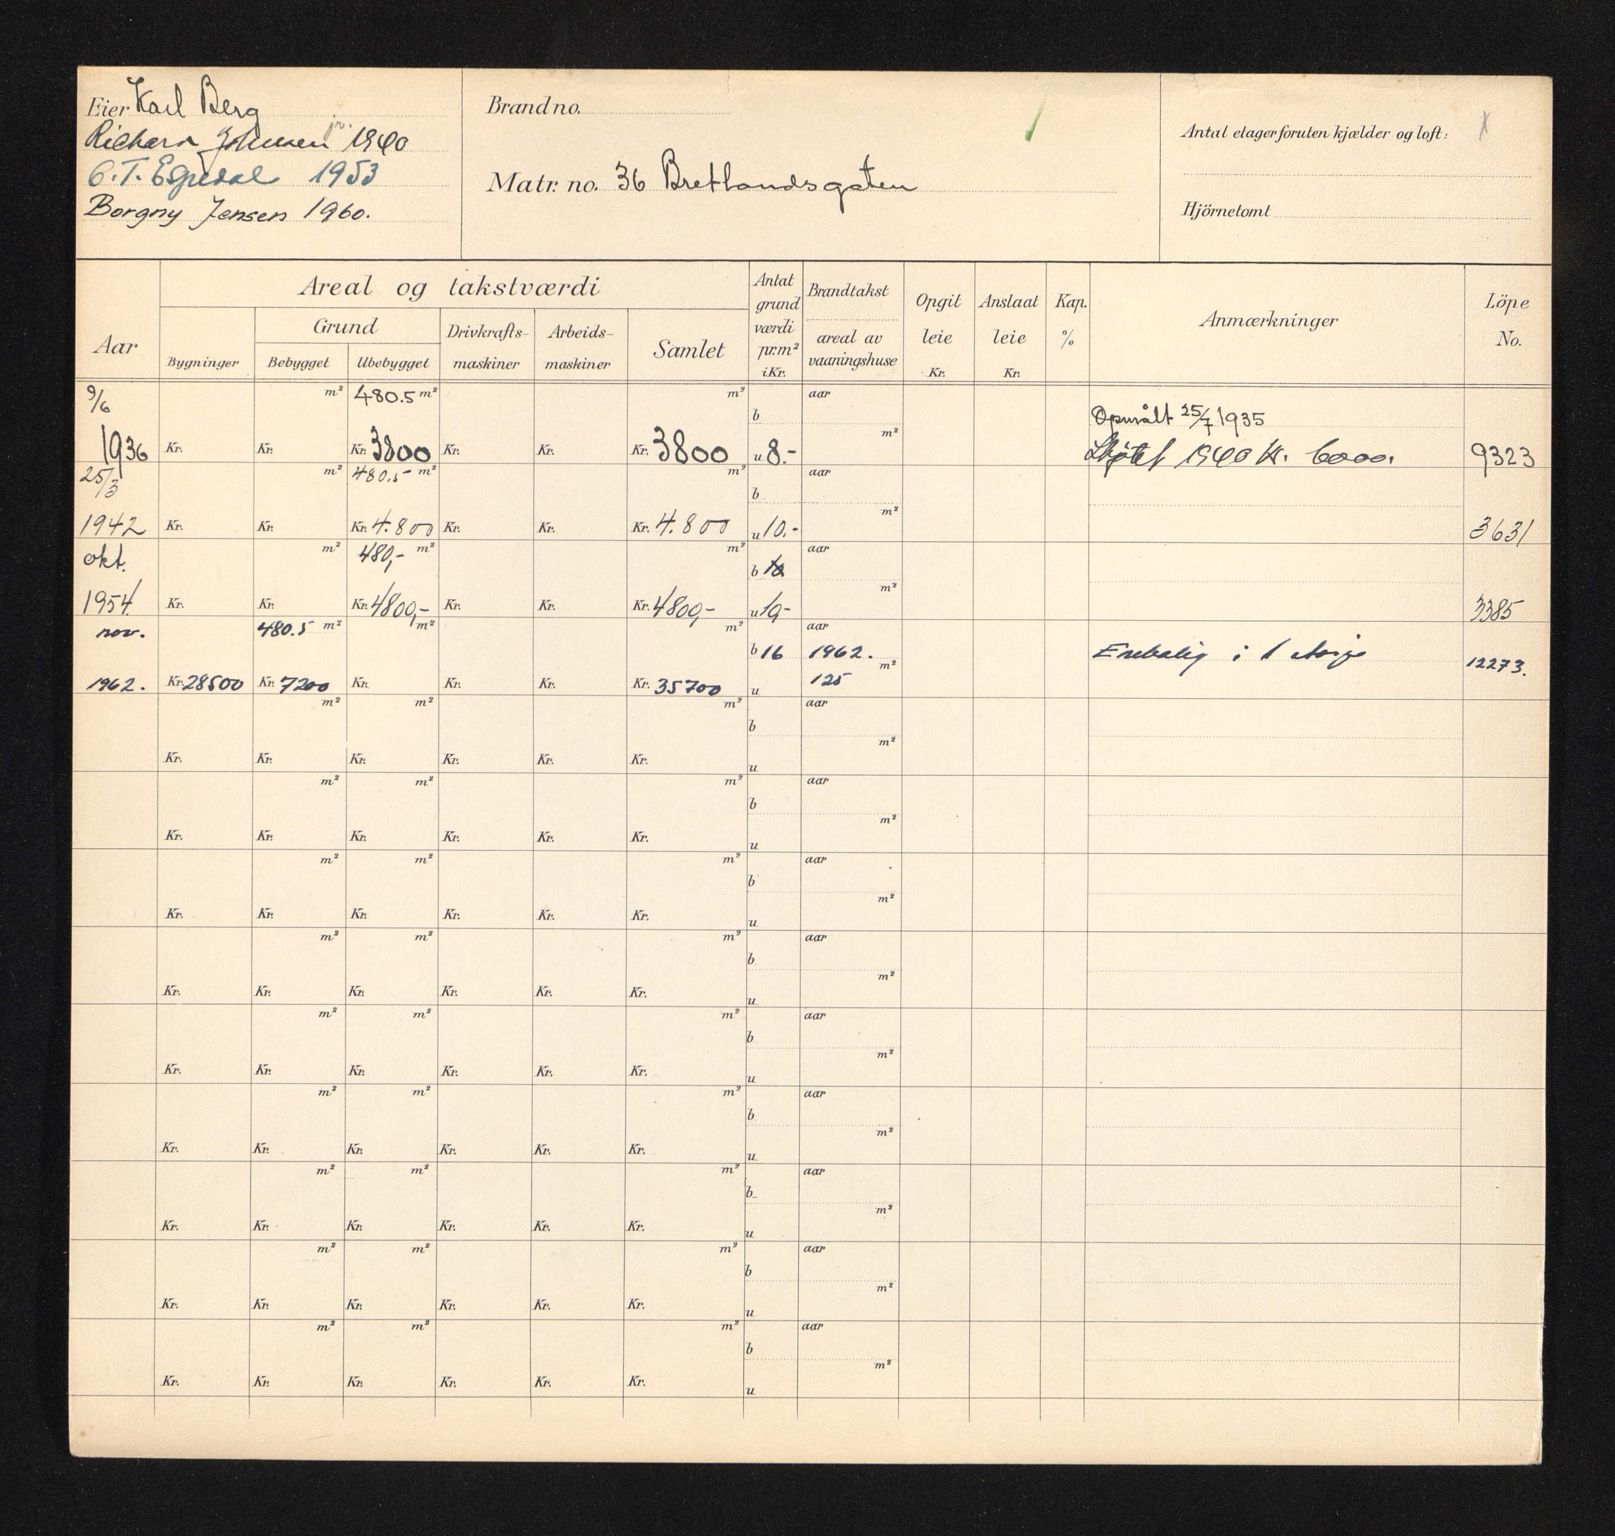 Eier Karl Berg
Richard Johnsen jr. 1940
O.T. Espedal 1953
Borgny Jensen 1960.
Brand no.
Matr. no. 36 Bretlandsgaten
Antal etager foruten kjælder og loft:
Hjörnetomt
Aar
Areal og takstværdi
Bygninger
Grund
Bebygget
Ubebygget
Drivkrafts-maskiner
Arbeids-maskiner
Samlet
Antat grund værdi pr. m² i Kr.
Brandtakst
areal av vaaningshuse
Opgit leie Kr.
Anslaat leie Kr.
Kap. %
Anmærkninger
Löpe No.
9/6 m² 480.5 m² m² b aar
Opmålt 25/7 1935
1936 Kr. Kr. Kr. 3800 Kr. Kr. Kr. 3800 u 8.- m² Skjøtet 1940 kr. 6000. 9323
25/3 m² 480.5 m² m² b aar
1942 Kr. Kr. Kr. 4.800 Kr. Kr. Kr. 4.800 u 10.- m² 3631
okt. m² 480,- m² m² b 10 aar
1954. Kr. Kr. Kr. 4800,- Kr. Kr. Kr. 4800,- u 10- m² 3385
nov. 480.5 m² m² m² b 16 aar 1962. Enebolig i 1 etasje 12273.
1962. Kr. 28500 Kr. 7200 Kr. Kr. Kr. Kr. 35700 u 125 m²
m² m² m² b aar
Kr. Kr. Kr. Kr. Kr. Kr. u m²
m² m² m² b aar
Kr. Kr. Kr. Kr. Kr. Kr. u m²
m² m² m² b aar
Kr. Kr. Kr. Kr. Kr. Kr. u m²
m² m² m² b aar
Kr. Kr. Kr. Kr. Kr. Kr. u m²
m² m² m² b aar
Kr. Kr. Kr. Kr. Kr. Kr. u m²
m² m² m² b aar
Kr. Kr. Kr. Kr. Kr. Kr. u m²
m² m² m² b aar
Kr. Kr. Kr. Kr. Kr. Kr. u m²
m² m² m² b aar
Kr. Kr. Kr. Kr. Kr. Kr. u m²
m² m² m² b aar
Kr. Kr. Kr. Kr. Kr. Kr. u m²